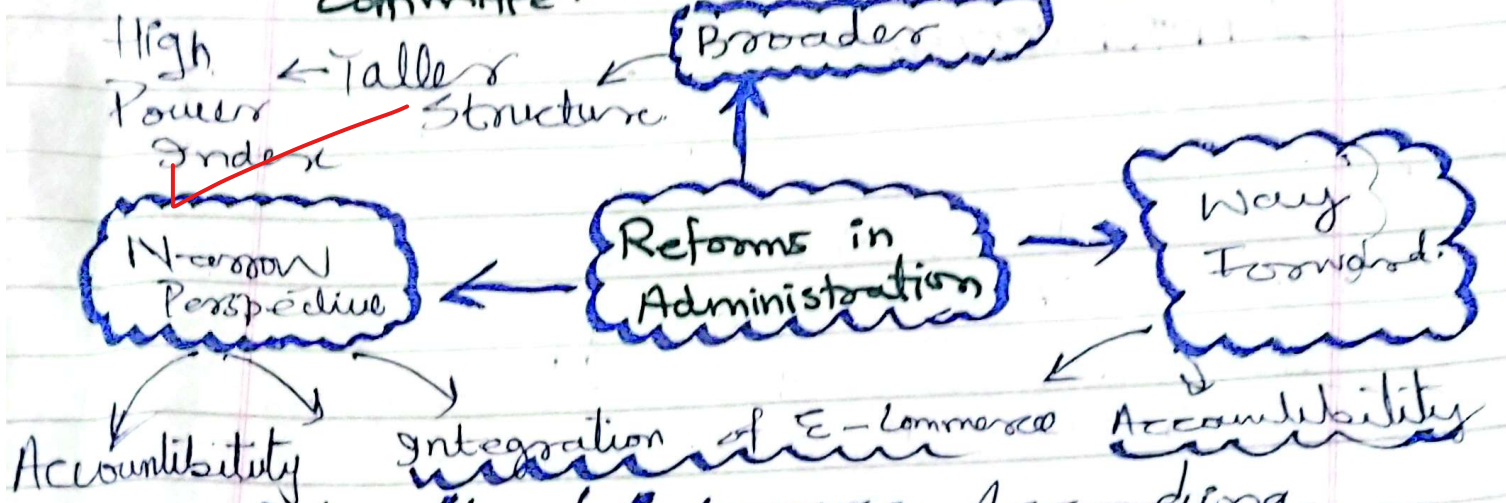 Broader
High
← Taller
Power
Structure
Index
Narrow
Perspective
Reforms in
Administration
Way
Forward.
Accountibitity
Integration of E-Commerce
Accountibility